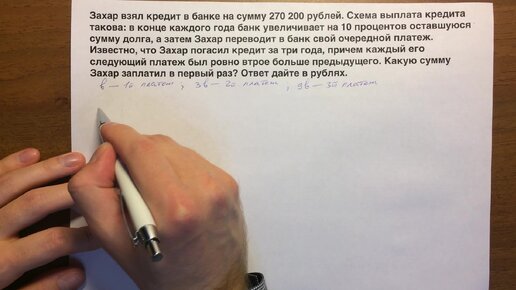 Захар взял кредит в банке на сумму 270 200 рублей. Схема выплата кредита
такова: в конце каждого года банк увеличивает на 10 процентов оставшуюся
сумму долга, а затем Захар переводит в банк свой очередной платеж.
Известно, что Захар погасил кредит за три года, причем каждый его
следующий платеж был ровно втрое больше предыдущего. Какую сумму
Захар заплатил в первый раз? Ответ дайте в рублях.
b — 1й платеж, 3b — 2й платеж, 9b — 3й платеж